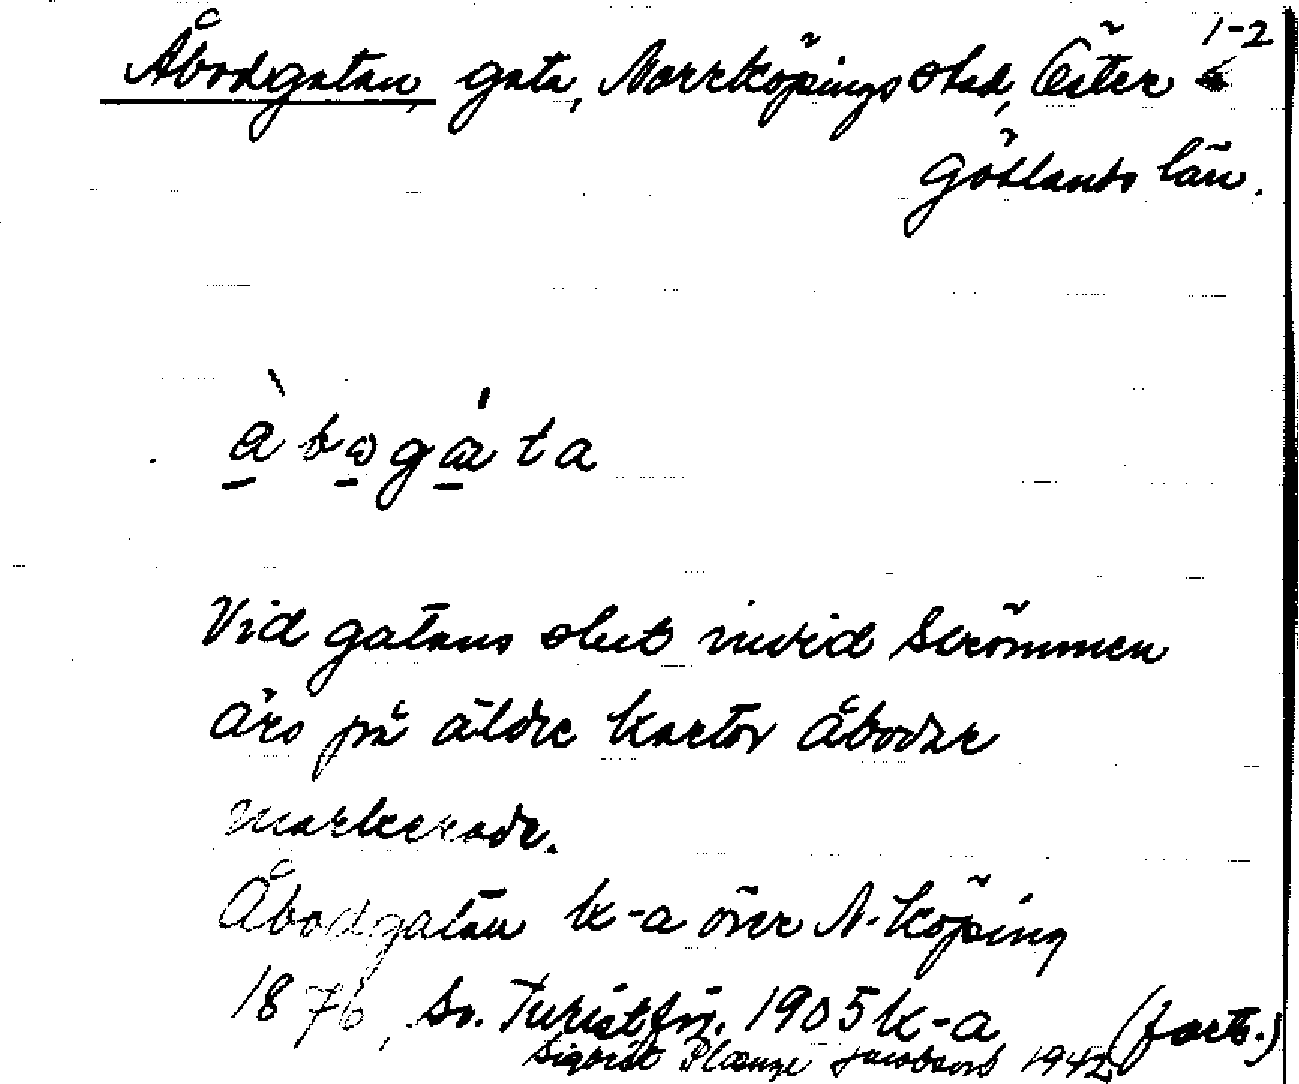 1-2
Åbodgatan, gata, Norrköpings stad, Öster
götlands län.
àbogáta
Vid gatans slut invid Strömmen
äro på äldre kartor åbodar
markerade.
Åbodgatan k-a över N-köping
1876, Sv. Turistför. 1905 k-a (forts.)
Sigurd Jacobson 1942